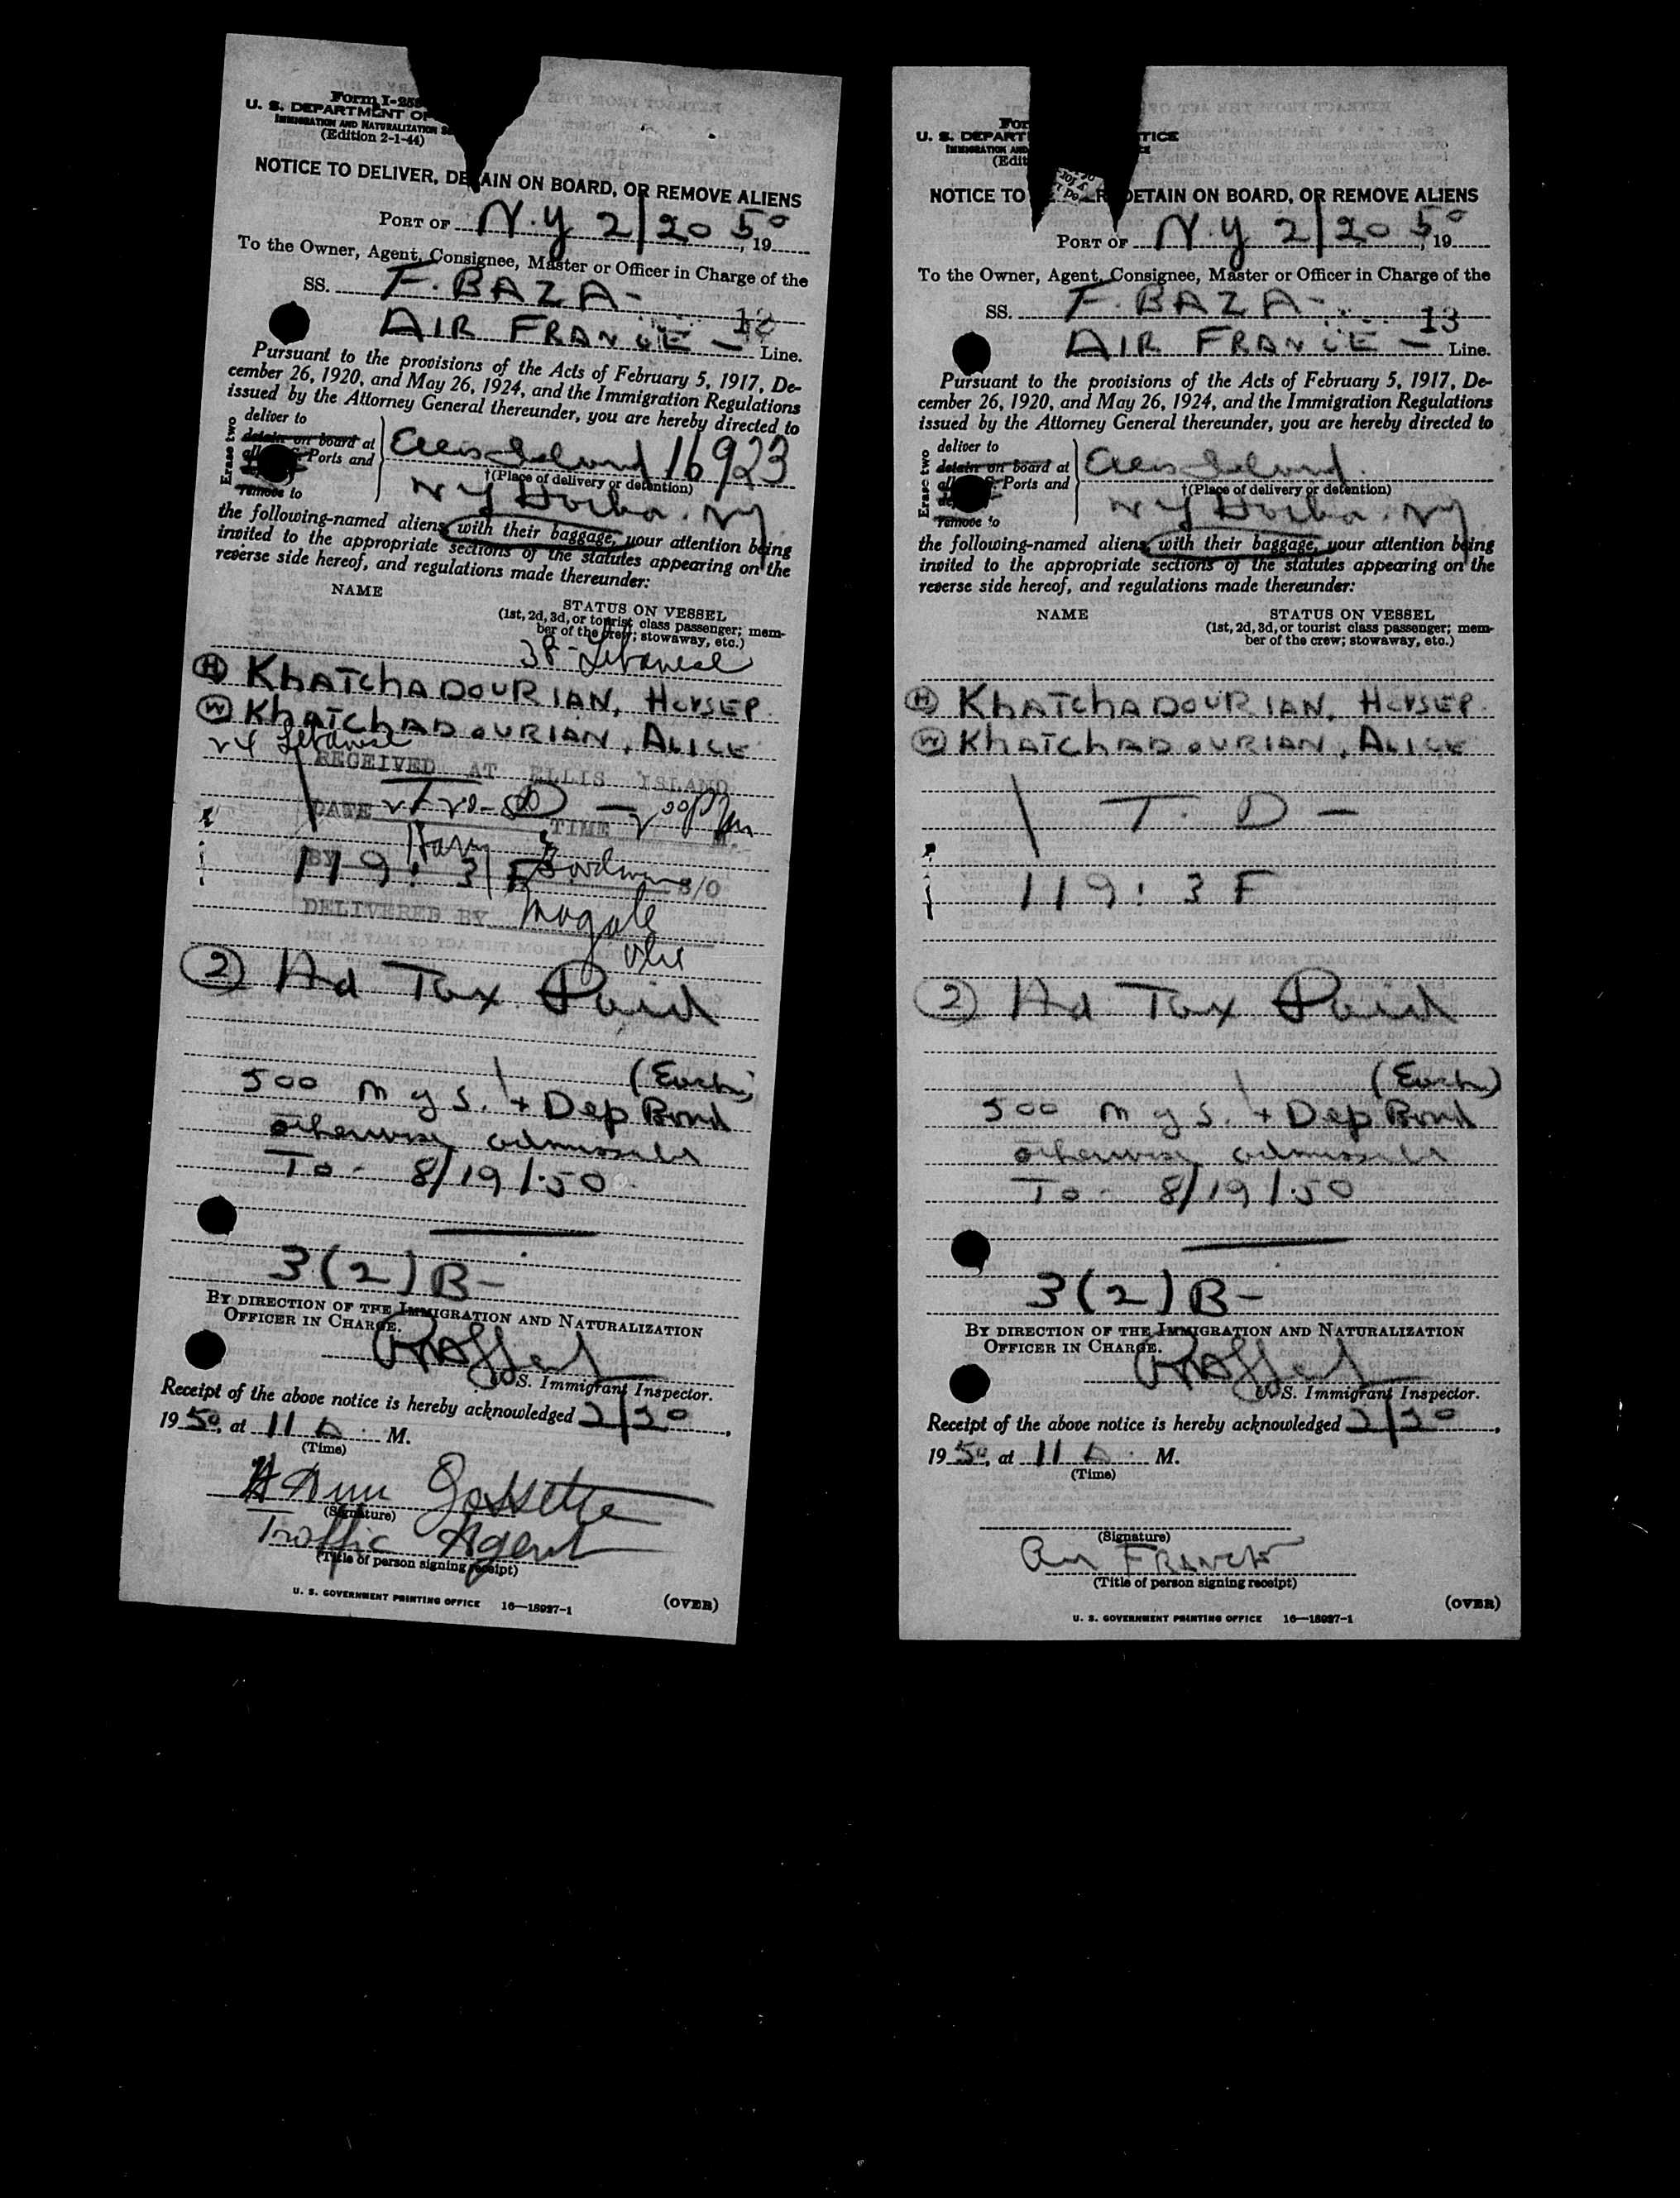 Form I-259
U. S. DEPARTMENT OF
IMMIGRATION AND NATURALIZATION S
(Edition 2-1-44)
NOTICE TO DELIVER, DETAIN ON BOARD, OR REMOVE ALIENS
PORT OF N.Y 2/20 50, 19
To the Owner, Agent, Consignee, Master or Officer in Charge of the
SS. F. BAZA-
AIR FRANCE - Line.
Pursuant to the provisions of the Acts of February 5, 1917, De-
cember 26, 1920, and May 26, 1924, and the Immigration Regulations
issued by the Attorney General thereunder, you are hereby directed to
Erase two
deliver to
detain on board at
Ports and
remove to
Ellis Island 16923
†(Place of delivery or detention)
NY Harbor. NY
the following-named aliens with their baggage, your attention being
invited to the appropriate sections of the statutes appearing on the
reverse side hereof, and regulations made thereunder:
NAME
STATUS ON VESSEL
(1st, 2d, 3d, or tourist class passenger; mem-
ber of the crew; stowaway, etc.)
38-Lebanese
(H) KHATCHADOURIAN, HOVSEP
(W) KHATCHADOURIAN, ALICE
24 Lebanese
RECEIVED AT ELLIS ISLAND
T. D -
DATE 2/20-50 TIME 2 00 PM M.
BY Harry S/O
119: 3 F
DELIVERED BY
(2) Hd Tax Paid
(Each)
500 M y S. + Dep Bond
otherwise admissible
To - 8/19/50
3(2)B-
BY DIRECTION OF THE IMMIGRATION AND NATURALIZATION
OFFICER IN CHARGE.
U. S. Immigrant Inspector.
Receipt of the above notice is hereby acknowledged 2/20,
19 50, at 11 A. M.
(Time)
(Signature)
Traffic Agent
(Title of person signing receipt)
U. S. GOVERNMENT PRINTING OFFICE 16—18927-1
(OVER)
For
U. S. DEPART TICE
IMMIGRATION AND CE
(Edit
NOTICE TO ER, DETAIN ON BOARD, OR REMOVE ALIENS
PORT OF N.Y 2/20 50, 19
To the Owner, Agent, Consignee, Master or Officer in Charge of the
SS. F. BAZA-
13
AIR FRANCE - Line.
Pursuant to the provisions of the Acts of February 5, 1917, De-
cember 26, 1920, and May 26, 1924, and the Immigration Regulations
issued by the Attorney General thereunder, you are hereby directed to
Erase two
deliver to
detain on board at
Ports and
remove to
Ellis Island.
†(Place of delivery or detention)
NY Harbor. NY
the following-named aliens with their baggage, your attention being
invited to the appropriate sections of the statutes appearing on the
reverse side hereof, and regulations made thereunder:
NAME
STATUS ON VESSEL
(1st, 2d, 3d, or tourist class passenger; mem-
ber of the crew; stowaway, etc.)
(H) KHATCHADOURIAN, HOVSEP
(W) KHATCHADOURIAN, ALICE
T. D -
119: 3 F
(2) Hd Tax Paid
(Each)
500 M y S. + Dep Bond
otherwise admissible
To - 8/19/50
3(2)B-
BY DIRECTION OF THE IMMIGRATION AND NATURALIZATION
OFFICER IN CHARGE.
U. S. Immigrant Inspector.
Receipt of the above notice is hereby acknowledged 2/20,
19 50, at 11 A. M.
(Time)
(Signature)
Air FRANCE
(Title of person signing receipt)
U. S. GOVERNMENT PRINTING OFFICE 16—18927-1
(OVER)